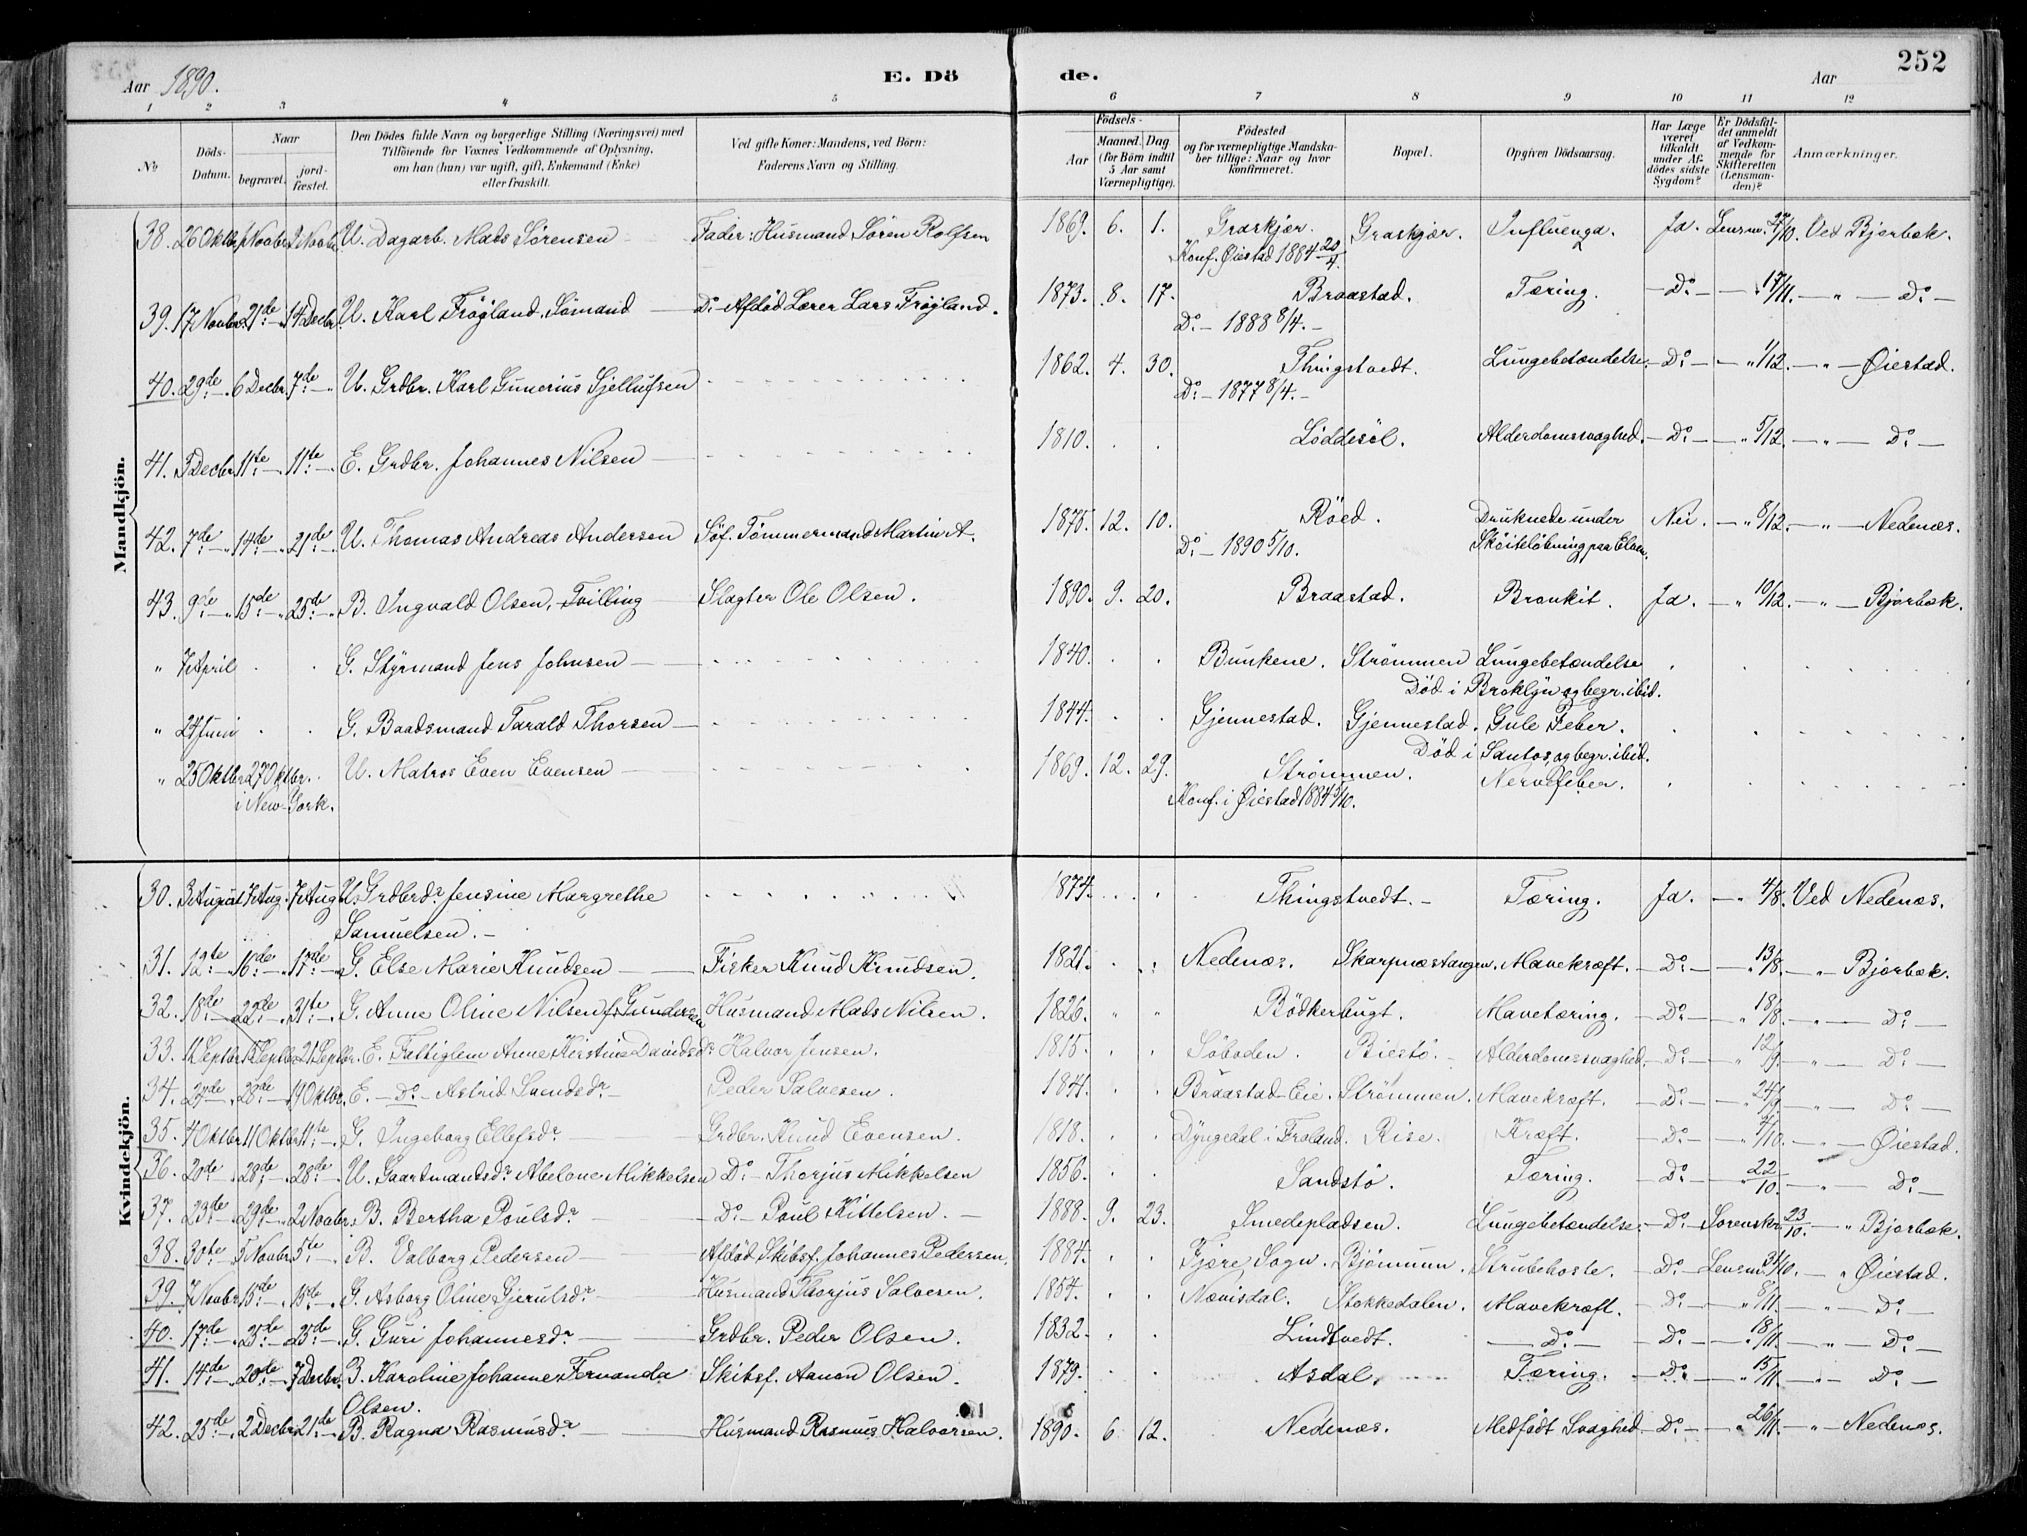 Aar 1890. E. Dö de. Aar 252
1 2 3 4 5 6 7 8 9 10 11 12
No Döds-Datum. Naar begravet. jord-fæstet. Den Dödes fulde Navn og borgerlige Stilling (Næringsvei) med Tilföiende for Voxnes Vedkommende af Oplysning, om han (hun) var ugift, gift, Enkemand (Enke) eller fraskilt. Ved gifte Koner: Mandens, ved Börn: Faderens Navn og Stilling. Födsels- Aar Maaned. Dag (for Börn indtil 5 Aar samt Værnepligtige). Födested og for værnepligtige Mandska-ber tillige: Naar og hvor konfirmeret. Bopæl. Opgiven Dödsaarsag. Har Læge været tilkaldt under Af-dödes sidste Sygdom? Er Dödsfal-det anmeldt af Vedkom-mende for Skifteretten (Lensman-den)? Anmærkninger.
Mandkjön.
38. 26 Oktbr. 1 Novbr. 2 Novbr. U. Dagarb. Mads Sørensen Fader: Husmand Søren Rolfsen 1869. 6. 1. Graskjær. Graskjær. Influenza. Ja. Lensm. 27/10. Ved Bjorbæk.
Konf. Øiestad 1884 20/4.
39. 17 Novbr. 21de 14 Decbr. U. Karl Frögland, Sömand Do Afdöd Lærer Lars Frögland. 1873. 8. 17. Braastad. Tæring. Do 17/11. " Do
Do 1888 8/4.
40. 29de 6 Decbr. 7de U. Grdbr. Karl Gunerius Gjellufsen 1862. 4. 30. Thingstvedt. Lungebetændelse. Do " 1/12. " Øiestad.
Do 1877 8/4.
41. 5 Decbr. 11te 11te E. Grdbr. Johannes Nilsen 1810. Löddesöl. Alderdomssvaghed. Do " 5/12. " Do
42. 7de 14de 21de U. Thomas Andreas Andersen Söf. Tömmermand Martin A. 1875. 12. 10. Röed. Druknede under Nei. " 8/12. " Nedenæs.
Do 1890 5/10. Sköiteløbning paa Elven.
43. 9de 15de 25de B. Ingvald Olsen, Tvilling Slagter Ole Olsen. 1890. 9. 20. Braastad. Bronkit. Ja. " 10/12. " Bjorbæk.
" 7 April G. Styrmand Jens Johnsen 1840. Bunkene. Strømmen Lungebetændelse
Död i Broklyn og begr. ibid.
" 24 Juni G. Baadsmand Tarald Thorsen 1844. Gjennestad. Gjennestad. Gule Feber.
Död i Santos, og begr. ibid.
" 25 Oktbr. 27 Oktbr. U. Matros Even Evensen 1869. 12. 29. Strømmen. Nervefeber.
i New-York. Konf. i Øiestad 1884 5/10.
Kvindekjön.
30. 3 August 7 Aug. 7 Aug. U. Grdbrdr. Jensine Margrethe 1874. Thingstvedt. Tæring. Ja. " 4/8. Ved Nedenæs.
Samuelsen.
31. 12te 16de 17de G. Else Marie Knudsen Fisker Knud Knudsen. 1821. Nedenæs. Skarpnæstangen. Mavekræft. Do " 13/8. " Bjorbæk.
32. 18de 22de 31te G. Anne Oline Nilsen f. Gundersen Husmand Mads Nilsen. 1826. Bödkerbugt. Mavetæring. Do " 18/8. " Do
33. 11 Septbr. 21 Septbr. E. Fattiglem Anne Kirstine Davidsdr. Halvor Jensen. 1815. Söboden. Biestö. Alderdomssvaghed. Do " 12/9. " Do
34. 24de 28de 19 Oktbr. E. Do Astrid Svendsdr. Peder Salvesen. Braastad Eie. Strømmen. Mavekræft. Do " 24/9. " Do
35. 4 Oktbr. 11 Oktbr. 11te G. Ingeborg Ellefsdr. Grdbr. Knud Evensen. 1818. Dyngedal i Froland. Rise. Kræft. Do " /10. " Øiestad.
36. 20de 28de 28de U. Gaardmandsdr. Abelone Mikkelsen Do Thorjus Mikkelsen 1856. Sandstö. Tæring. Do " 22/10. " Do
37. 23de 29de 2 Novbr. B. Bertha Poulsdr. Do Poul Kittelsen. 1888. 9. 23. Smedepladsen. Lungebetændelse. Do Sorenskr. 23/10. " Bjorbæk.
38. 30te 5 Novbr. 5te B. Valborg Pedersen Afdöd Skibsf. Johannes Pedersen. 1884. Fjære Sogn. Bjömmun. Strubehoste. Do Lensm. 31/10. " Øiestad.
39. 7 Novbr. 15de 15de G. Asborg Oline Gjerulsdr. Husmand Thorjus Salvesen. 1854. Nævisdal. Stokkedalen. Mavekræft. Do " 8/11. " Do
40. 17de 23de 23de G. Guri Johannesdr. Grdbr. Peder Olsen. 1832. Lindtvedt. Do Do " 18/11. " Do
41. 14de 20de 7 Decbr. B. Karoline Johanne Fernanda Skibsf. Aanon Olsen. 1879. Asdal. Tæring. Do " 15/11. " Do
Olsen.
42. 25de 2 Decbr. 21de B. Ragna Rasmusdr. Husmand Rasmus Halvorsen. 1890. 6. 12. Nedenæs. Medfödt Svaghed. Do " 26/11. " Nedenæs.